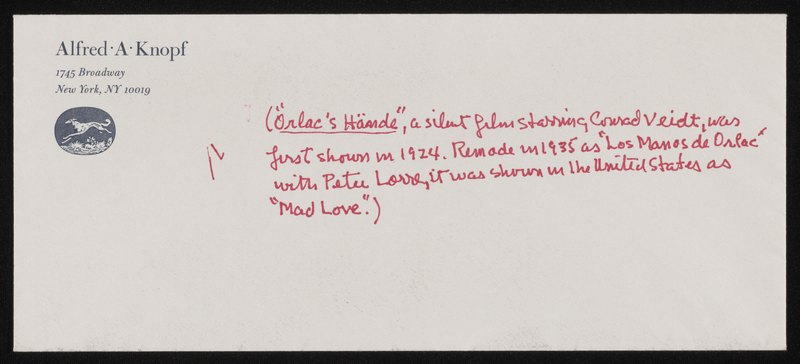 Alfred·A·Knopf
1745 Broadway
New York, NY 10019
("Orlac's Hände", a silent film starring Conrad Veidt, was
first shown in 1924. Remade in 1935 as "Los Manos de Orlac"
with Peter Lorre, it was shown in the United States as
"Mad Love".)